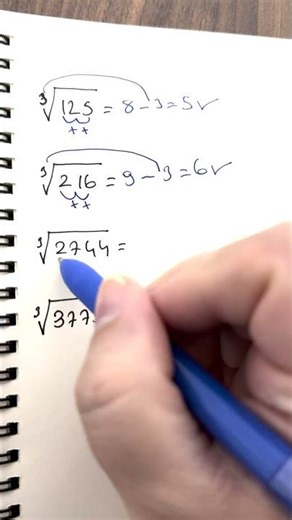 ³√125 = 8 - 3 = 5 ✓
++
³√216 = 9 - 3 = 6 ✓
++
³√2744 =
³√377